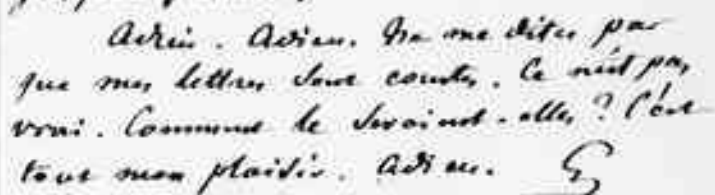 Adieu. Adieu. Ne me dites pas
que mes lettres sont courtes. Ce n'est pas
vrai. Comment le seraient-elles ? C'est
tout mon plaisir. Adieu. G